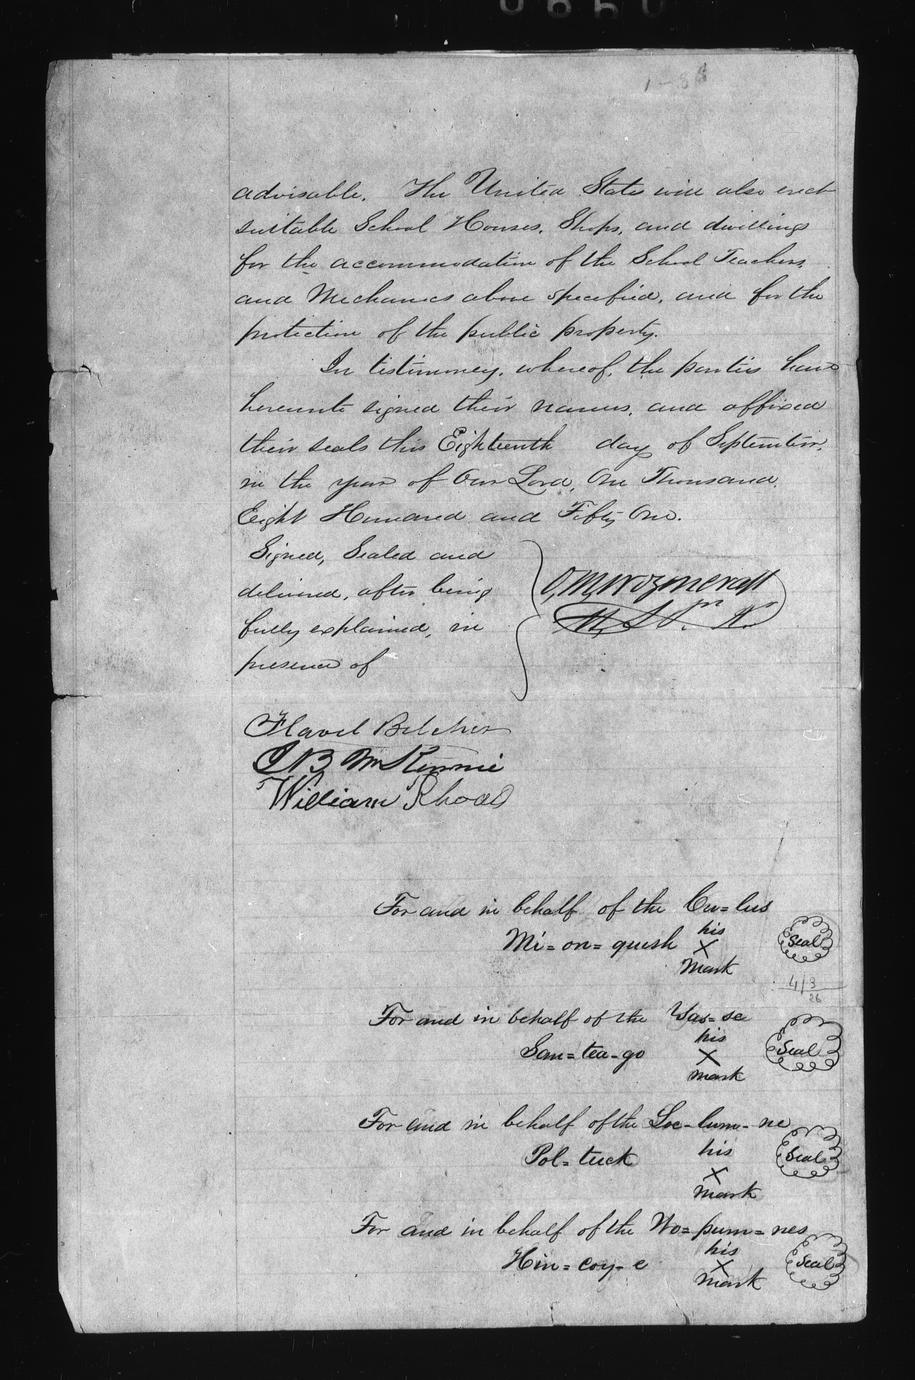 1-86
advisable. The United States will also erect
suitable School Houses, Shops, and dwellings
for the accommodation of the School Teachers,
and Mechanics above specified, and for the
protection of the public property.
In testimoney, whereof, the parties have
hereunto signed their names, and affixed
their seals this Eighteenth day of September,
in the year of Our Lord, One Thousand,
Eight Hundred and Fifty One.
Signed, Sealed and
delivered, after being
fully explained, in
presence of
O, M, Wozencraft
Flavel Belcher
J B McKinnie
William Rhoad
For and in behalf of the Cu=lus
Mi=on=quish his
X
mark
Seal
For and in behalf of the Yas=se
San=tea-go his
X
mark
Seal
For and in behalf of the Loc-lum-ne
Pol=tuck his
X
mark
Seal
For and in behalf of the Wo=pum=nes
Hin=coy-e his
X
mark
Seal